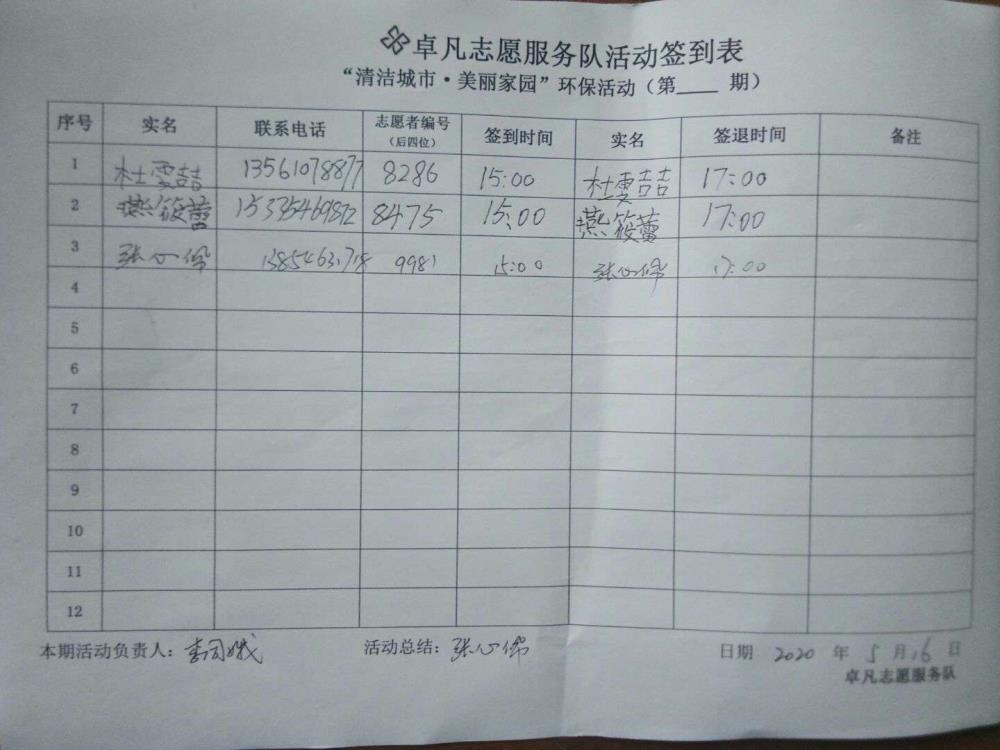 卓凡志愿服务队活动签到表
“清洁城市·美丽家园”环保活动（第____期）
序号 实名 联系电话 志愿者编号（后四位） 签到时间 实名 签退时间 备注
1 杜雲喆 13561078877 8286 15:00 杜雲喆 17:00
2 燕筱蕾 15335469872 8475 15:00 燕筱蕾 17:00
3 张心伟 9981 15:00 张心伟 17:00
4
5
6
7
8
9
10
11
12
本期活动负责人： 活动总结：张心伟 日期 2020 年 5 月 16 日
卓凡志愿服务队